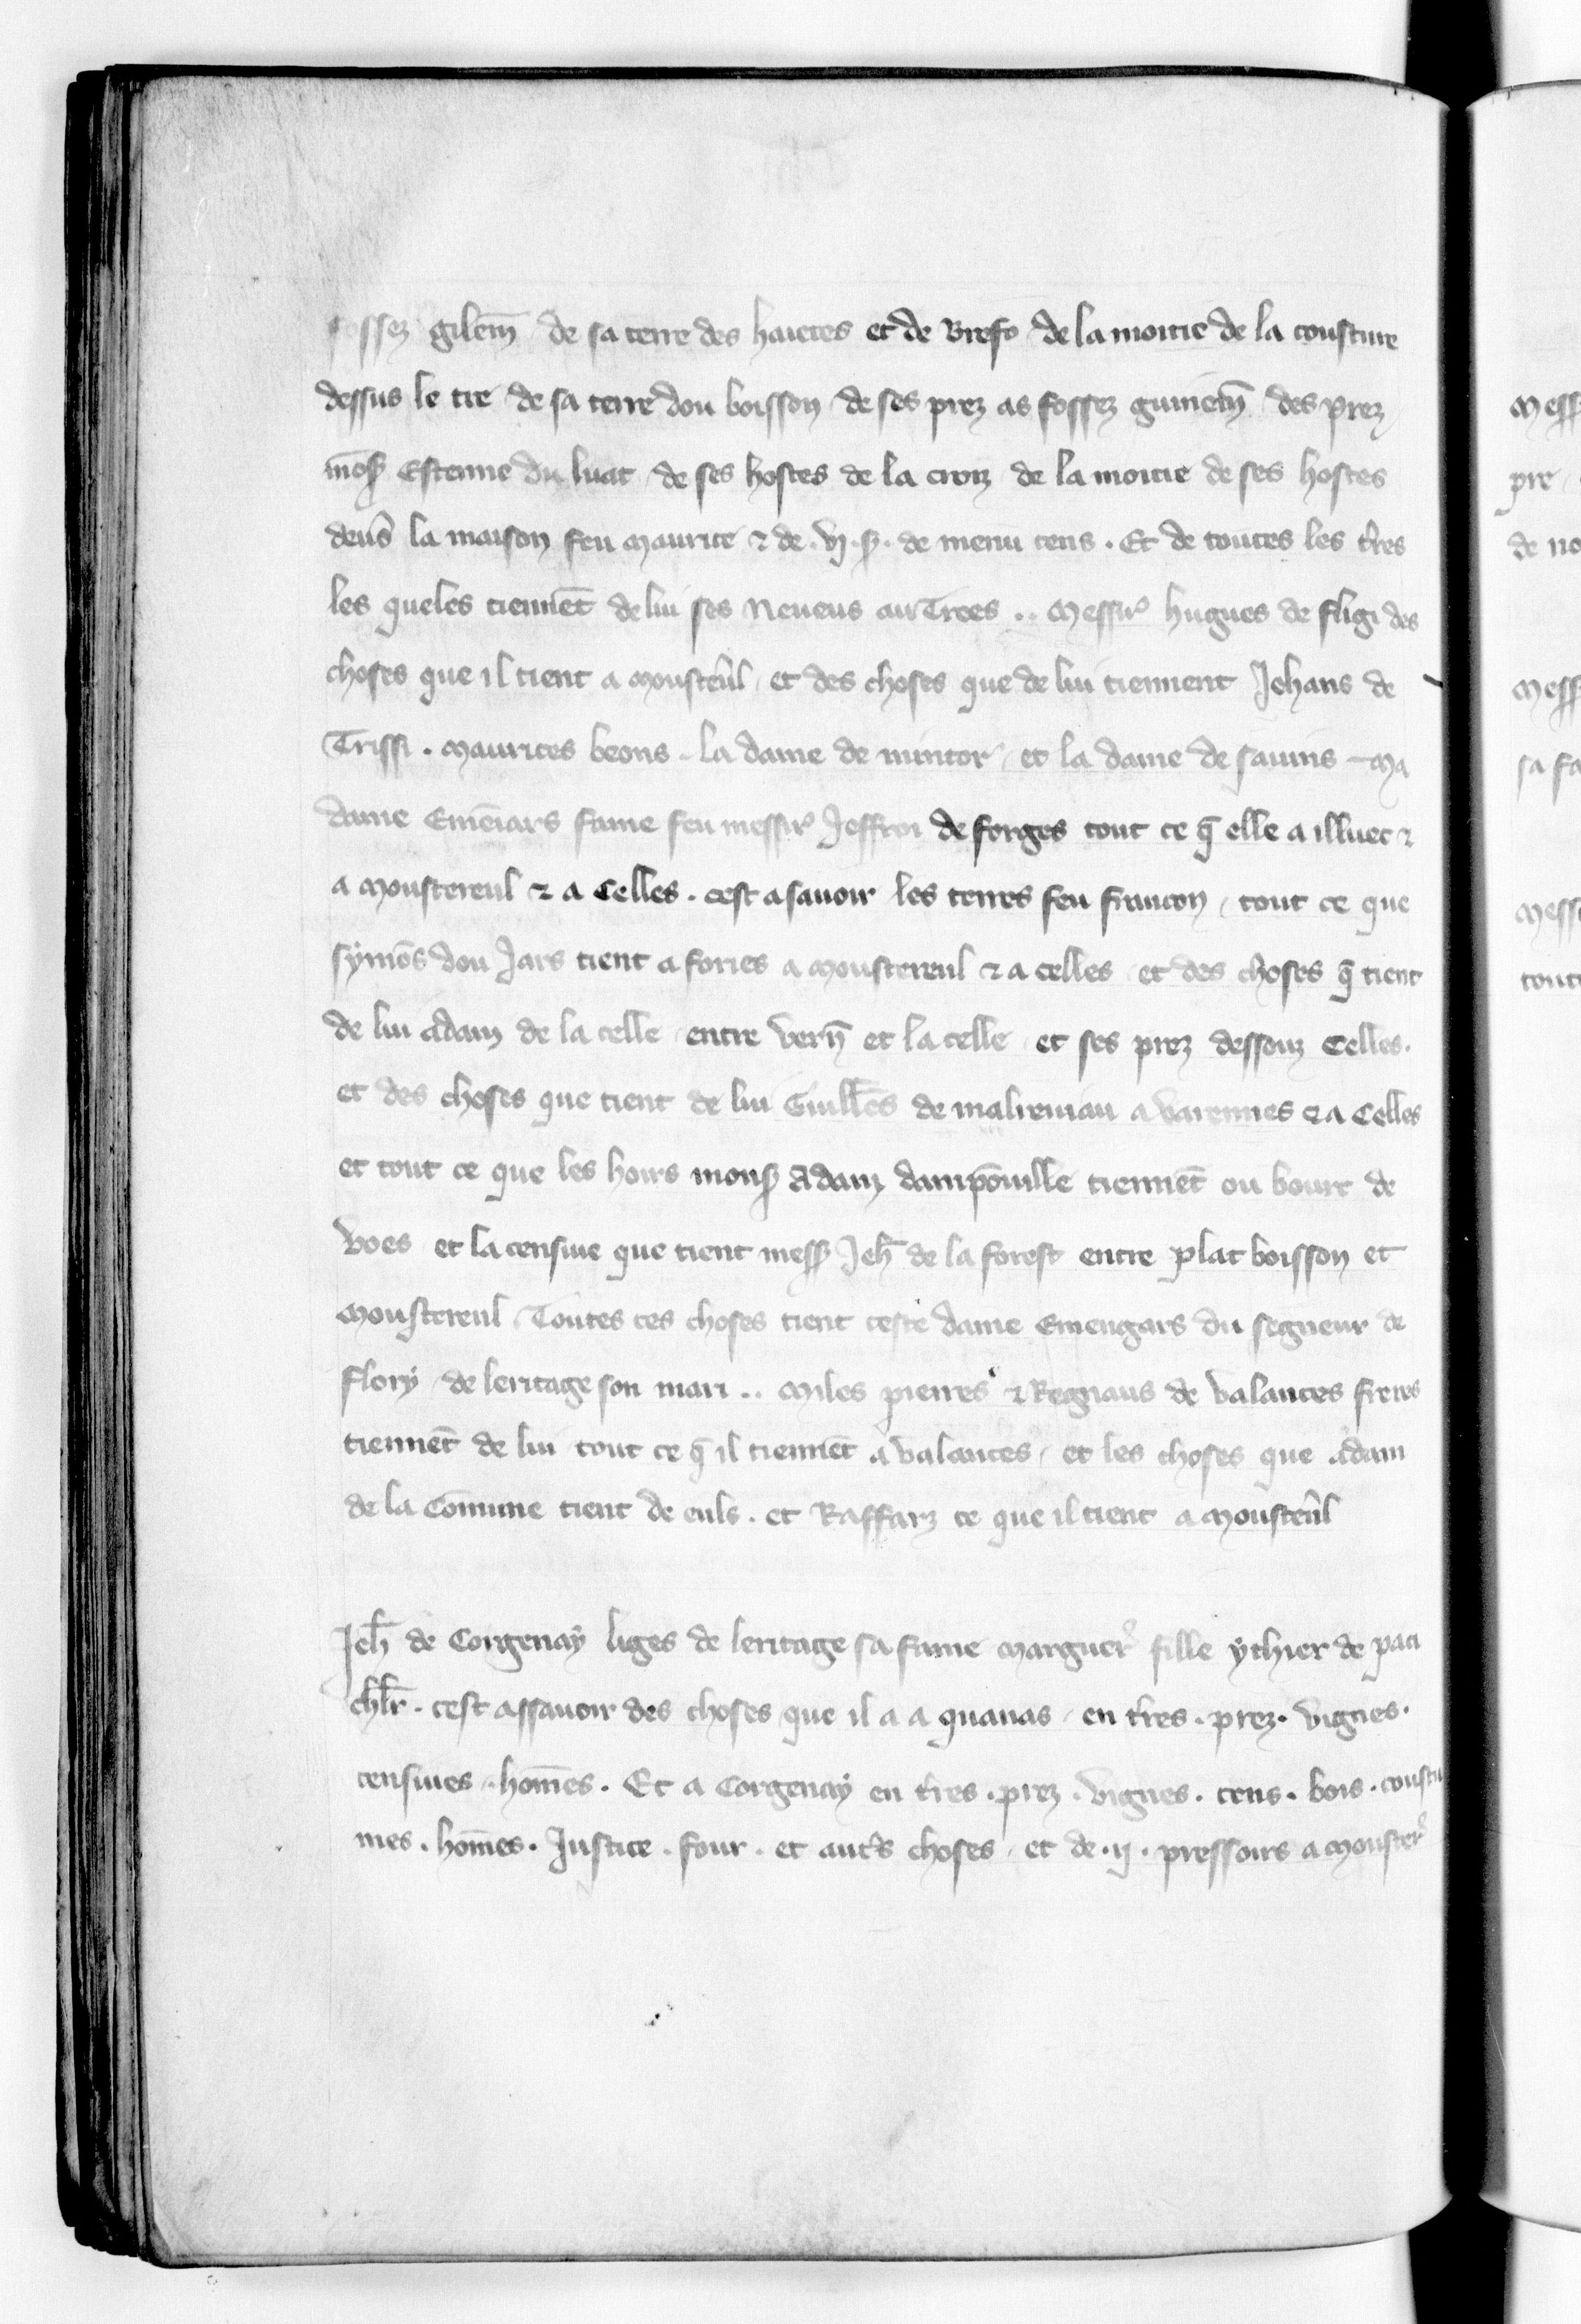 fossez gilem̄ de sa terre des haietes et de Brefo de la moitie de la cousture
dessus le tre de sa terre dou boisson de ses prez as fossez guinem̄ des prez
mōs Estenne du luat de ses hostes de la croiz de la moitie de ses hostes
deus la maison feu maurice ⁊ de .vj. s. de menu cens . Et de toutes les t̄res
les queles tiennēt de lui ses Neueus au Trees .. Messir̾ hugues de fligi des
choses que il tient a moustēul et des choses que de lui tiennent Jehans de
Trissi . Maurices beons la dame de mintor et la dame de sauins Ma
dame Emēiars fame feu messir̾ Jeffroi de forges tout ce q̄ elle a illuec ⁊
a moustereul ⁊ a Celles . cest asauoir les terres feu francon tout ce que
symōs dou Jars tient a fories a moustereul ⁊ a celles et des choses q̄ tient
de lui Adam de la celle entre vern̄ et la celle et ses prez dessouz Celles.
et des choses que tient de lui Guill̄es de maliremiau a varennes ⁊ a Celles
et tout ce que les hoirs mons Adam dampōuille tiennēt ou bourc de
voes et la censiue que tient mess Jeh̄ de la forest entre plat boisson et
moustereul Toutes ces choses tient ceste dame Emengars du segneur de
flory de leritage son mari .. Miles pierres ⁊ Regnaus de valances freres
tiennēt de lui tout ce q̄ il tiennēt a valances et les choses que Adam
de la Cōmune tient de euls . et Raffarz ce que il tient a moustēul
Jeh̄ de Corgenay liges de leritage sa fame marguer̾ fille ythier de paci
chl̄r . cest assauoir des choses que il a a quanas en t̄res . prez . vignes .
censiues . hōmes . Et a Corgenay en t̄res . prez . vignes . cens . bois . coustu
mes . hōmes . Justice . four . et aut̄s choses et de .ij. pressoirs a mouster̾
Mess
pre
de no
Mess
sa fa
Mess
tout